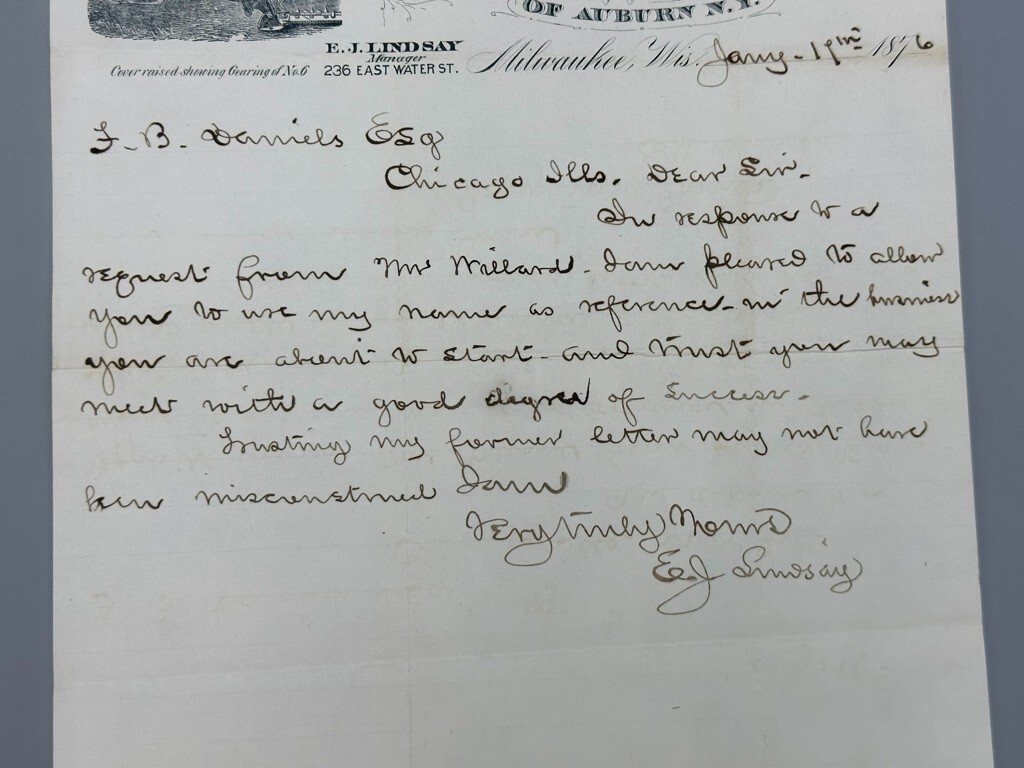 OF AUBURN N.Y.
E. J. LINDSAY
Manager
Cover raised showing Gearing of No. 6
236 EAST WATER ST.
Milwaukee, Wis. Jany. 19th 1876
F. B. Daniels Esq
Chicago Ills. Dear Sir.
In response to a
request from Mr Willard. I am pleased to allow
you to use my name as reference in the business
you are about to start and trust you may
meet with a good degree of success.
Trusting my former letter may not have
been misconstrued I am
Very truly Yours
E. J. Lindsay